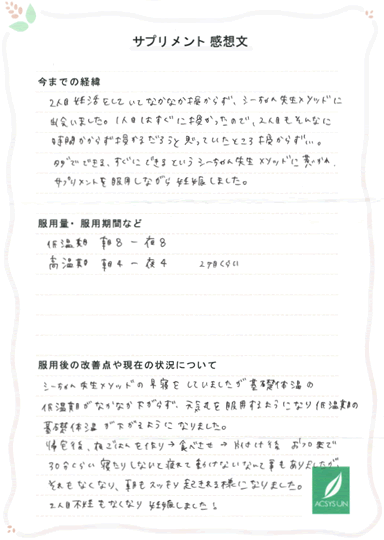 サプリメント 感想文
今までの経緯
2人目妊活をしていてなかなか授からず、シーちゃん先生メソッドに
出会いました。1人目はすぐに授かったので、2人目もそんなに
時間かからず授かるだろうと思っていたところ授からず…。
タダでできる、すぐにできるというシーちゃん先生メソッドに惹かれ、
サプリメントを服用しながら妊娠しました。
服用量・服用期間など
低温期 朝8 ー 夜8
高温期 朝4 ー 夜4 2ヶ月くらい
服用後の改善点や現在の状況について
シーちゃん先生メソッドの早寝をしていましたが基礎体温の
低温期がなかなか下がらず、を服用するようになり低温期の
基礎体温が下がるようになりました。
帰宅後、晩ごはんを作り→食べさせ→片付け後 まで
30分くらい寝たりしないと疲れて動けないなんて事もありましたが、
それもなくなり、朝もスッキリ起きれる様になりました。
2人目不妊もなくなり妊娠しました!
ACSYSUN